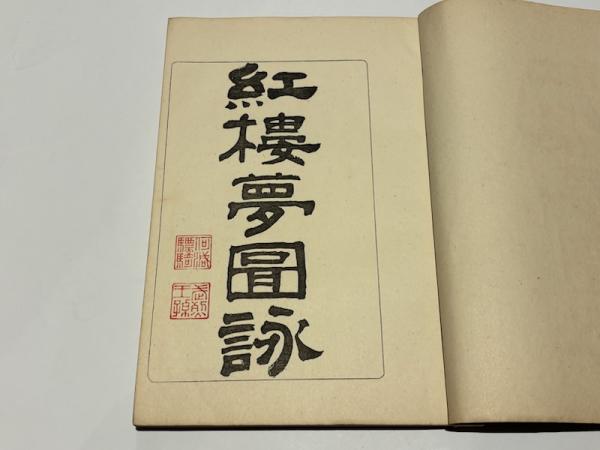 紅樓夢圖詠